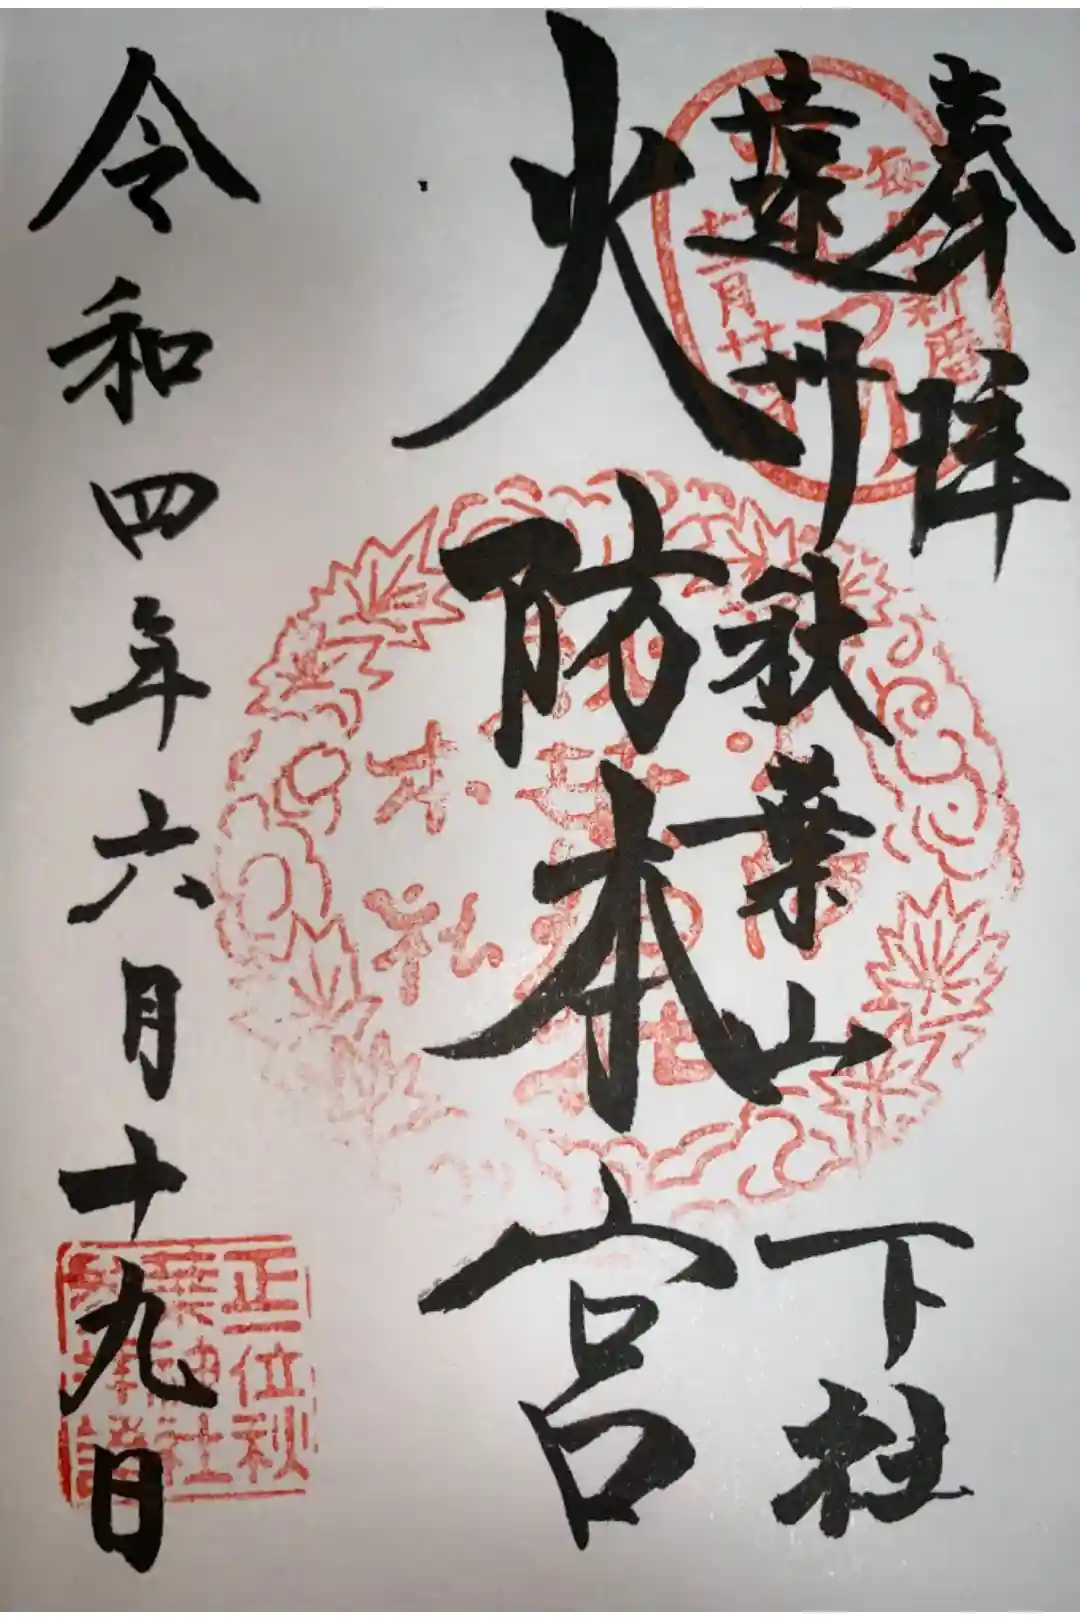 奉拝
遠州秋葉山下社
火防本宮
令和四年六月十九日
正一位秋
葉神社
本社